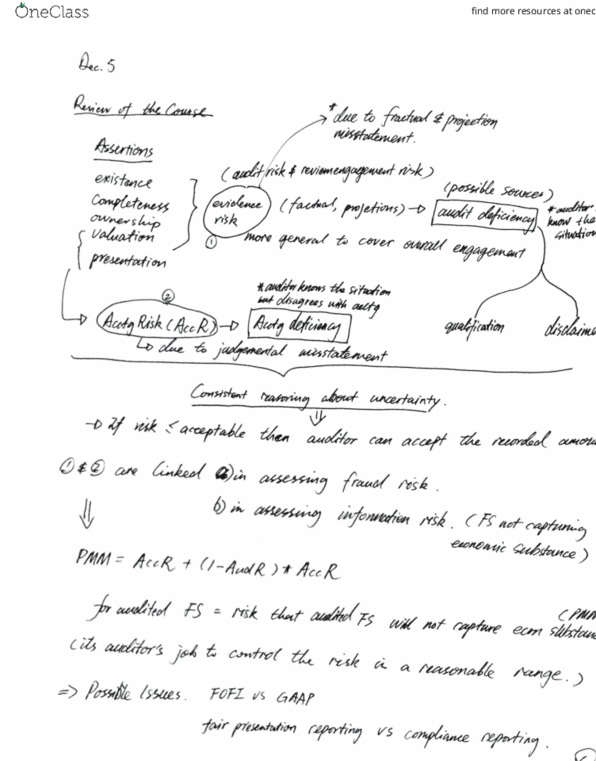 OneClass
find more resources at onec
Dec. 5
Review of the Course
* due to fractual & projection
misstatement.
Assertions
(audit risk & review engagement risk)
existence
completeness
ownership
valuation
presentation
evidence
risk
(factual, projections) →
(possible sources)
audit deficiency
* auditor
know the
situation
① more general to cover overall engagement
②
* auditor knows the situation
but disagrees with acctg
Acctg Risk (AccR) → Acctg deficiency
qualification
disclaime
↳ due to judgemental misstatement
Consistent reasoning about uncertainty.
→ If risk ≤ acceptable then auditor can accept the recorded amou
① & ② are linked a) in assessing fraud risk.
b) in assessing information risk. (FS not capturing
economic substance)
PMM = AccR + (1-AudR) * AccR
(PMM
for audited FS = risk that audited FS will not capture ecm substan
(its auditor's job to control the risk in a reasonable range.)
=> Possible Issues. FOFI vs GAAP
fair presentation reporting vs compliance reporting.